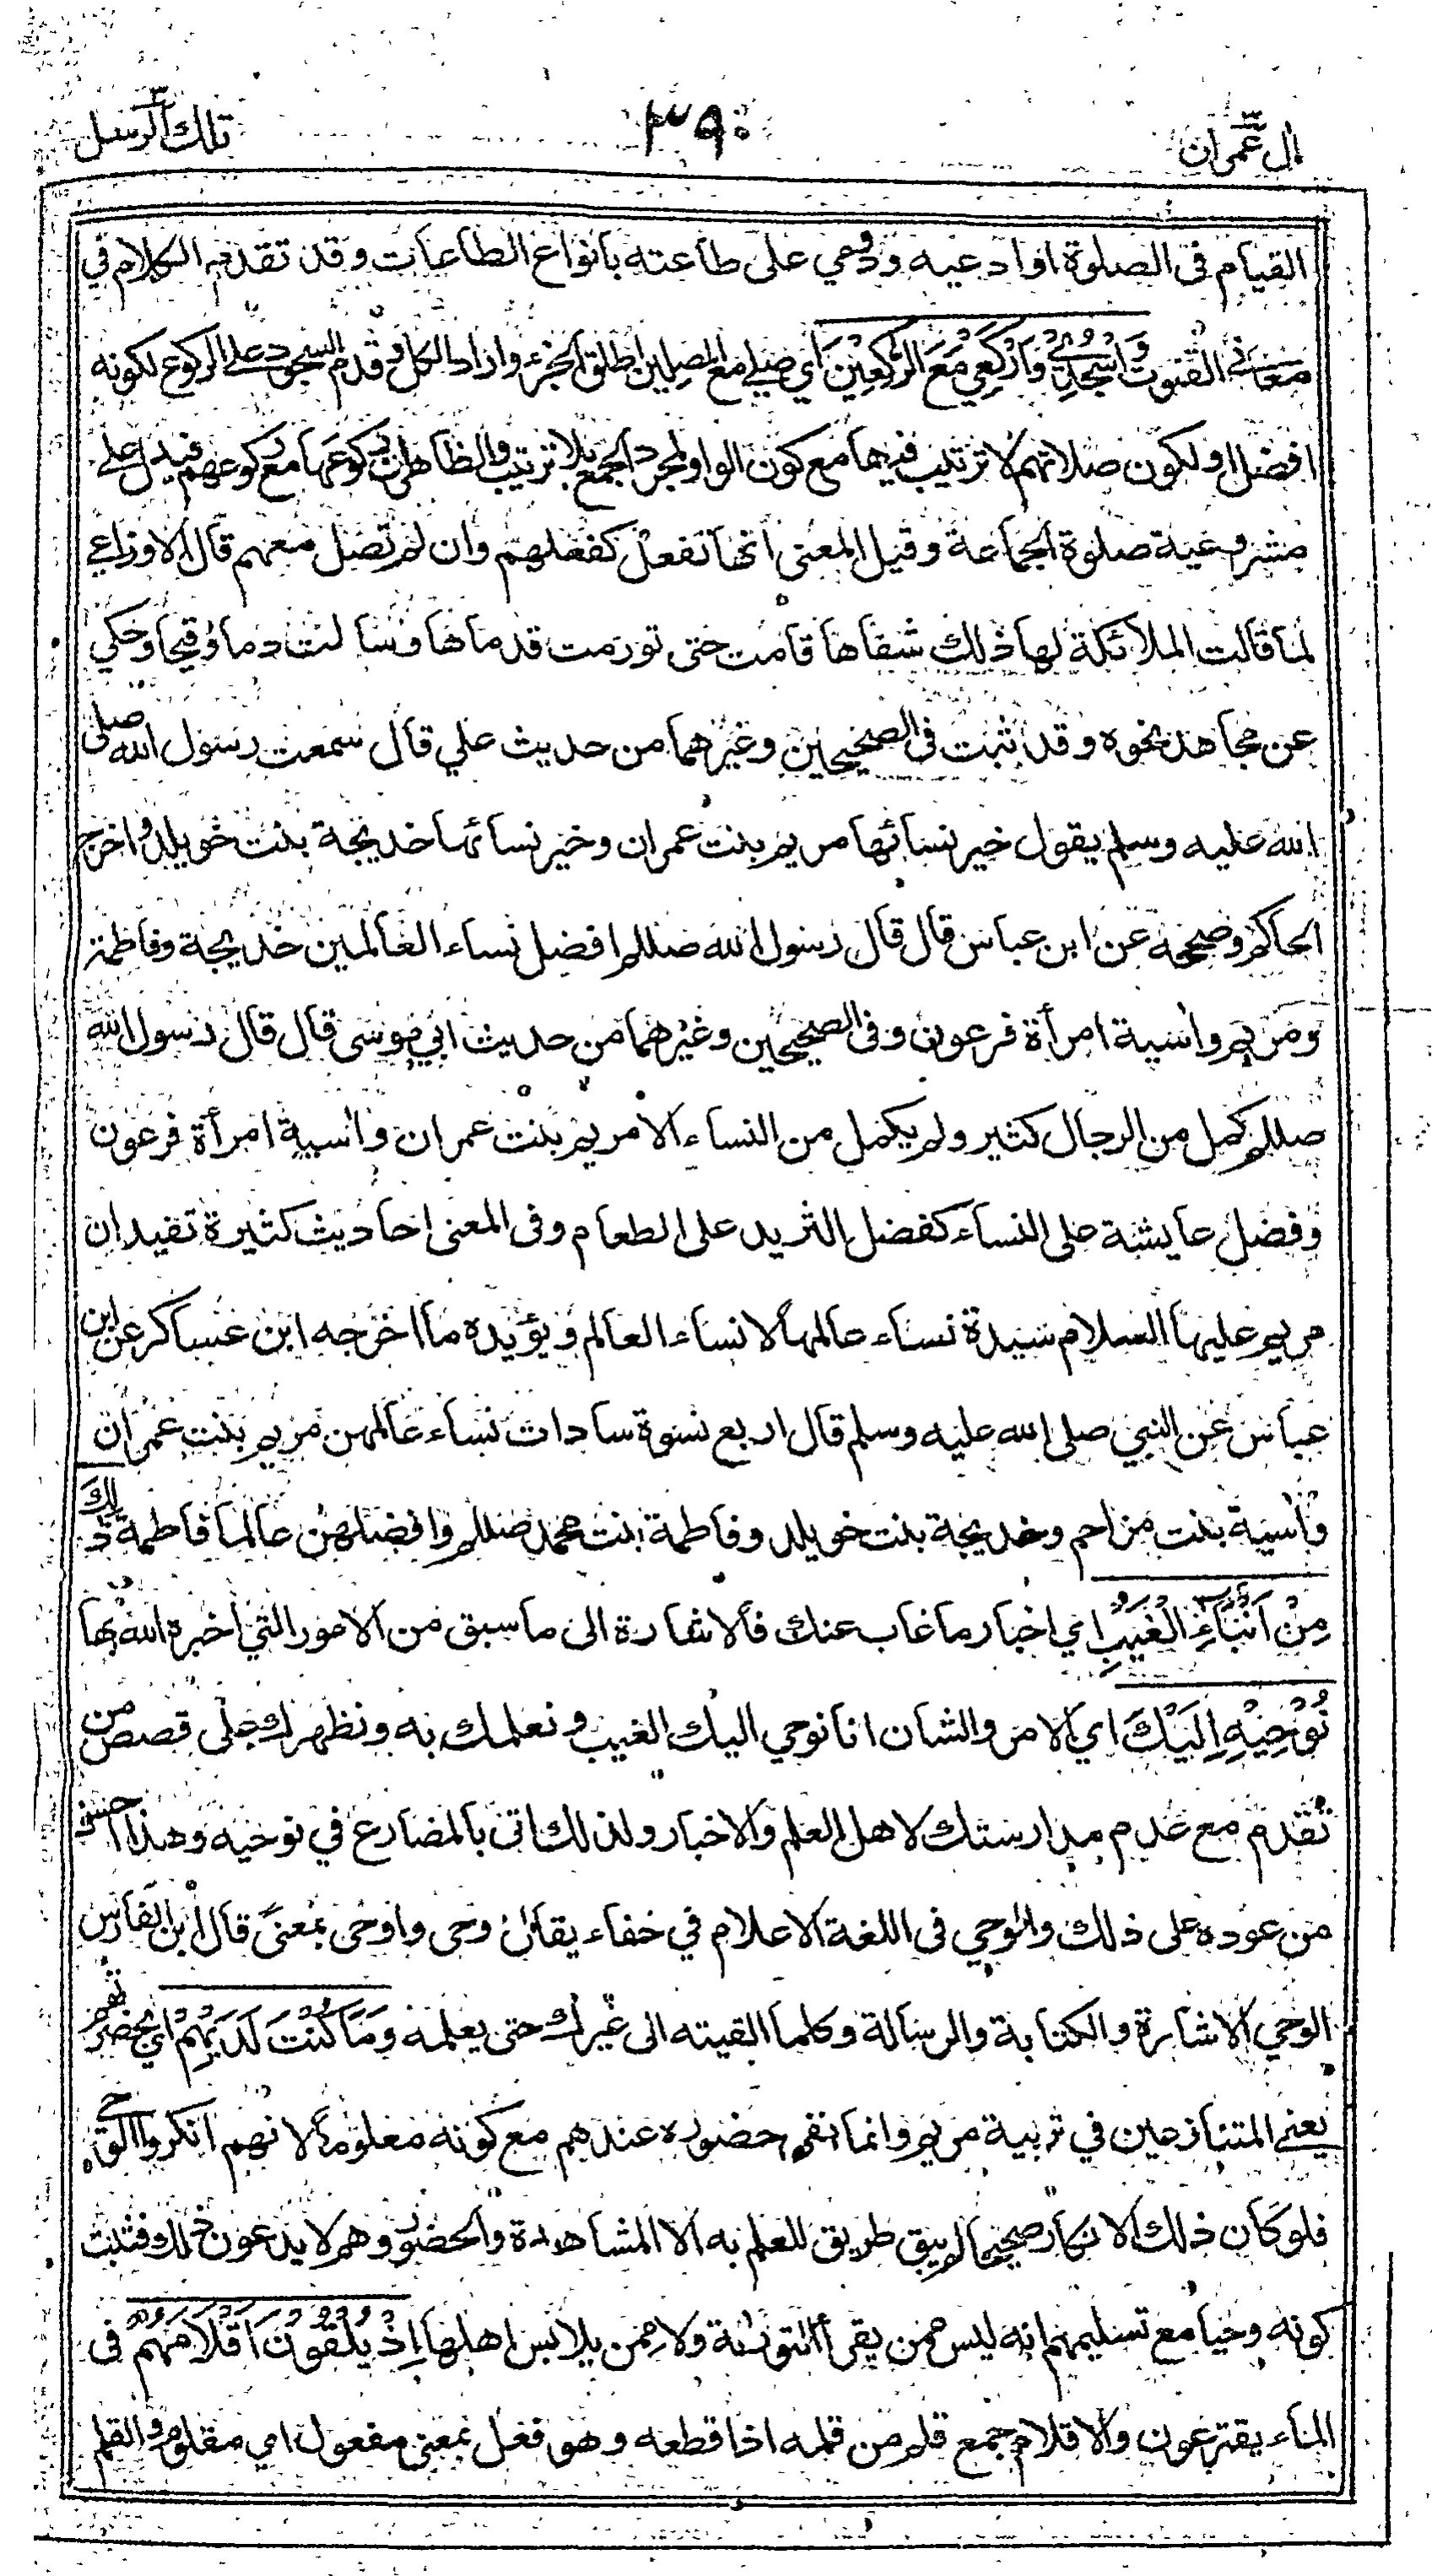 اٰل عمران ٣ ٣٩٠ تلك الرسل ٣
القيام في الصلوة او ادعيه ودومي على طاعته بانواع الطاعات وقد تقدم الكلام في
معاني القنوت وَاسْجُدِيْ وَارْكَعِيْ مَعَ الرّٰكِعِيْنَ اي صلي مع المصلين اطلق الجزء واراد الكل وقدم السجود على الركوع لكونه
افضل او لكون صلاتهم لا ترتيب فيها مع كون الواو لمجرد الجمع بلا ترتيب والظاهر ان ركوعها مع ركوعهم فيدل على
مشروعية صلوة الجماعة وقيل المعنى انها تفعل كفعلهم وان لم تصل معهم قال الاوزاعي
لما قالت الملائكة لها ذلك شفاها قامت حتى تورمت قدماها وسالت دما وقيحا وحكي
عن مجاهد نحوه وقد ثبت في الصحيحين وغيرهما من حديث علي قال سمعت رسول الله صلى
الله عليه وسلم يقول خير نسائها مريم بنت عمران وخير نسائها خديجة بنت خويلد واخرج
الحاكم وصححه عن ابن عباس قال قال رسول الله صللم افضل نساء العالمين خديجة وفاطمة
ومريم واٰسية امرأة فرعون وفي الصحيحين وغيرهما من حديث ابي موسى قال قال رسول الله
صللم كمل من الرجال كثير ولم يكمل من النساء الا مريم بنت عمران واٰسية امرأة فرعون
وفضل عايشة على النساء كفضل الثريد على الطعام وفي المعنى احاديث كثيرة تفيد ان
مريم عليها السلام سيدة نساء عالمها لا نساء العالم ويؤيده ما اخرجه ابن عساكر عن ابن
عباس عن النبي صلى الله عليه وسلم قال اربع نسوة سادات نساء عالمهن مريم بنت عمران
واٰسية بنت مزاحم وخديجة بنت خويلد وفاطمة بنت محمد صللم وافضلهن عالما فاطمة ذٰلِكَ
مِنْ اَنْبَاءِ الْغَيْبِ اي اخبار ما غاب عنك فالاشارة الى ما سبق من الامور التي اخبره الله بها
نُوْحِيْهِ اِلَيْكَ اي الامر والشان انا نوحي اليك الغيب ونعلمك به ونظهرك على قصص من
تقدم مع عدم مدارستك لاهل العلم والاخبار ولذلك اتى بالمضارع في نوحيه وهذا احسن
من عوده على ذلك والوحي في اللغة الاعلام في خفاء يقال وحى واوحى بمعنى قال ابن الفارس
الوحي الاشارة والكتابة والرسالة وكلما القيته الى غيرك حتى يعلمه وَمَا كُنْتَ لَدَيْهِمْ اي بحضرتهم
يعني المتنازعين في تربية مريم وانما نفى حضوره عندهم مع كونه معلوما لانهم انكروا الوحي
فلو كان ذلك الانكار صحيحا لم يبق طريق للعلم به الا المشاهدة والحضور وهم لا يدعون ذلك فثبت
كونه وحيا مع تسليمهم انه ليس ممن يقرأ التورٰىة ولا ممن يلابس اهلها اِذْ يُلْقُوْنَ اَقْلَامَهُمْ في
الماء يقترعون والاقلام جمع قلم من قلمه اذا قطعه وهو فعل بمعنى مفعول اي مقلوم والقلم